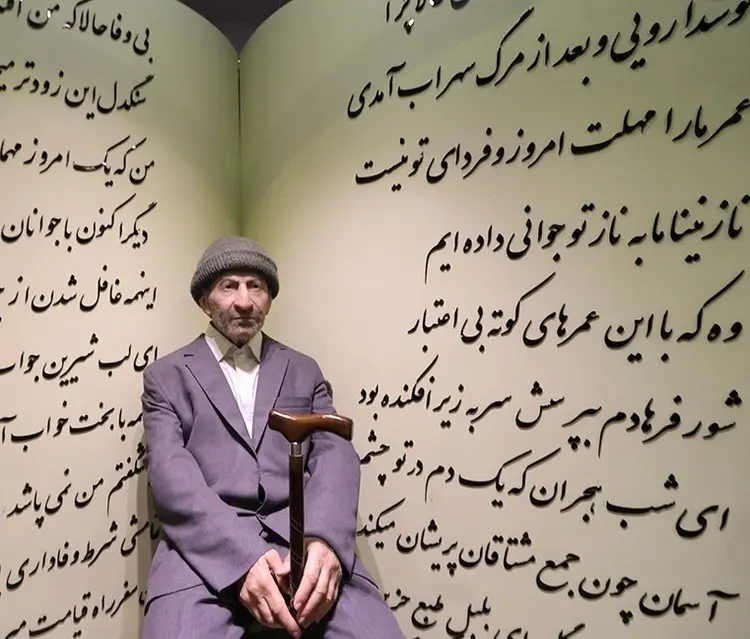 چرا
نوشدارویی و بعد از مرگ سهراب آمدی
عمر ما را مهلت امروز و فردای تو نیست
نازنینا ما به ناز تو جوانی داده ایم
وه که با این عمرهای کوته بی اعتبار
شور فرهادم بپرسش سر به زیر افکنده بود
ای شب هجران که یک دم در تو چشم
آسمان چون جمع مشتاقان پریشان میکند
بلبل طبع
بی وفا حالا که من
سنگدل این زودتر
من که یک امروز
دیگر اکنون با جوانان
اینهمه غافل شدن از
ای لب شیرین
با بخت خواب
شگفتم من نمی پاشد
شرط وفاداری
سفر راه قیامت